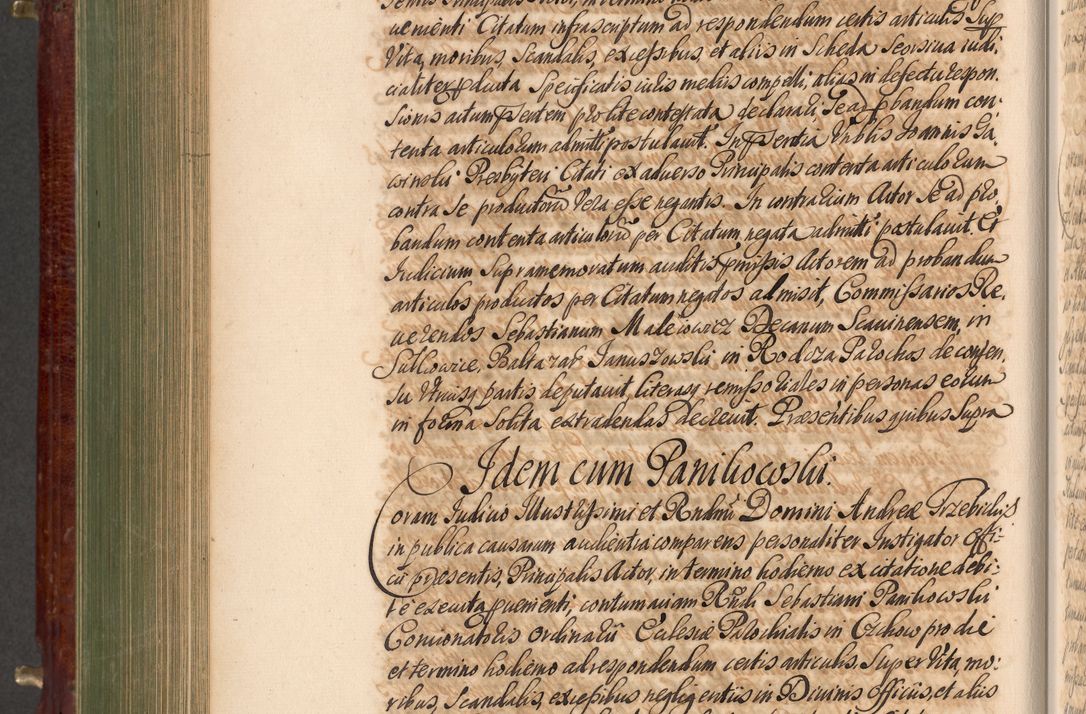 uenienti Citatum infrascriptum ad respondendum certis articulis Sup
Vita, moribus, Scandalis, excessibus, et aliis in Scheda Seorsiua iudi,
cialiter producta Specificatis iuris mediis compelli, alias in defectu respon,
sionis actum psentem pro lite contestata declarari. Se ad pbandum con,
tenta articulorum admitti postulauit. In psentia Vnblis Joannis
Presbyteri Citati ex aduerso Principalis contenta articulorum
contra Se productorũ Vera esse negantis. In contrarium Actor Se ad pro,
bandum contenta articulorũ per Citatum negata admitti postulauit. Et
Iudicium Supramemoratum auditis pmissis Actorem ad probandum
articulos productos per Citatum negatos admisit, Commissarios Re,
uerendos Sebastianum Malewicz Decanum Scauinensem, in
Sulkowice, Baltazar Januszowski in Rodoza Parochos de consen,
su Vtriusq partis deputauit, literasq remissoriales in personas eorum
in forma Solita extradendas decreuit. Præsentibus quibus Supra
Idem cum Panikowski.
Coram Iudicio Illustrissimi et Rndmi Domini Andreæ Trzebicki
in publica causarum audientia comparens personaliter Instigator Offi:
cii præsentis, Principalis Actor, in termino hodierno ex citatione debi:
te executa puenienti, contumaciam Rndi Sebastiani Panikowski
Concionatoris Ordinarii Ecclesiæ Parochialis in Czchow pro die
et termino hodierno ad respondendum certis articulis, Super Vita, mo:
ribus, Scandalis, excessibus, negligentiis in Diuinis officiis, et aliis